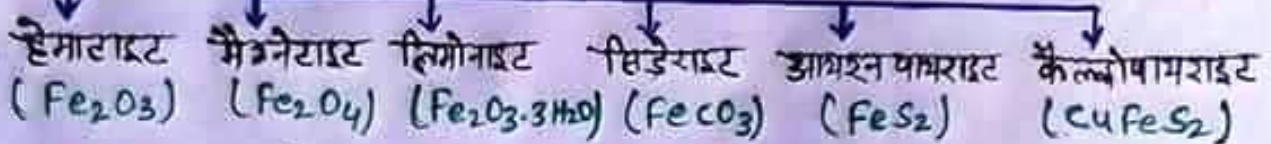 हेमाटाइट मैग्नेटाइट लिमोनाइट सिडेराइट आयरन पायराइट कैल्कोपायराइट
(Fe₂O₃) (Fe₂O₄) (Fe₂O₃.3H₂O) (FeCO₃) (FeS₂) (CuFeS₂)